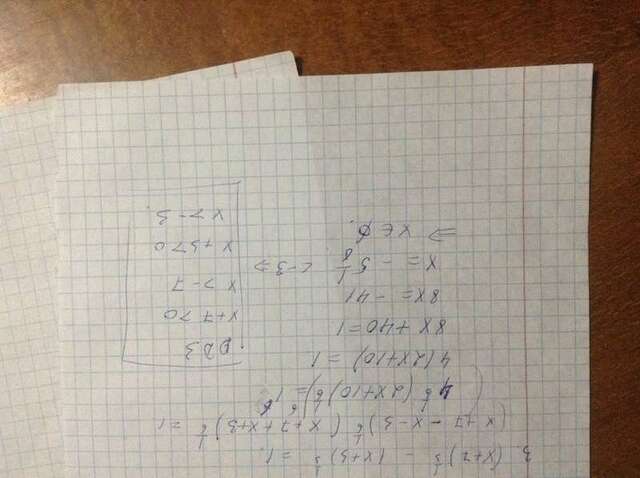 3. (x+7)^{1/3} - (x+3)^{1/3} = 1.
(x+7 - x - 3)^{1/6} (x+7+x+3)^{1/6} = 1
(4^{1/6} (2x+10)^{1/6})^6 = 1^6
4(2x+10) = 1.
8x + 40 = 1
8x = -41
x = -5 1/8. < -3 ⇒
⇒ x ∈ ∅.
ОДЗ
x+7 > 0
x > -7
x+3 > 0
x > -3.